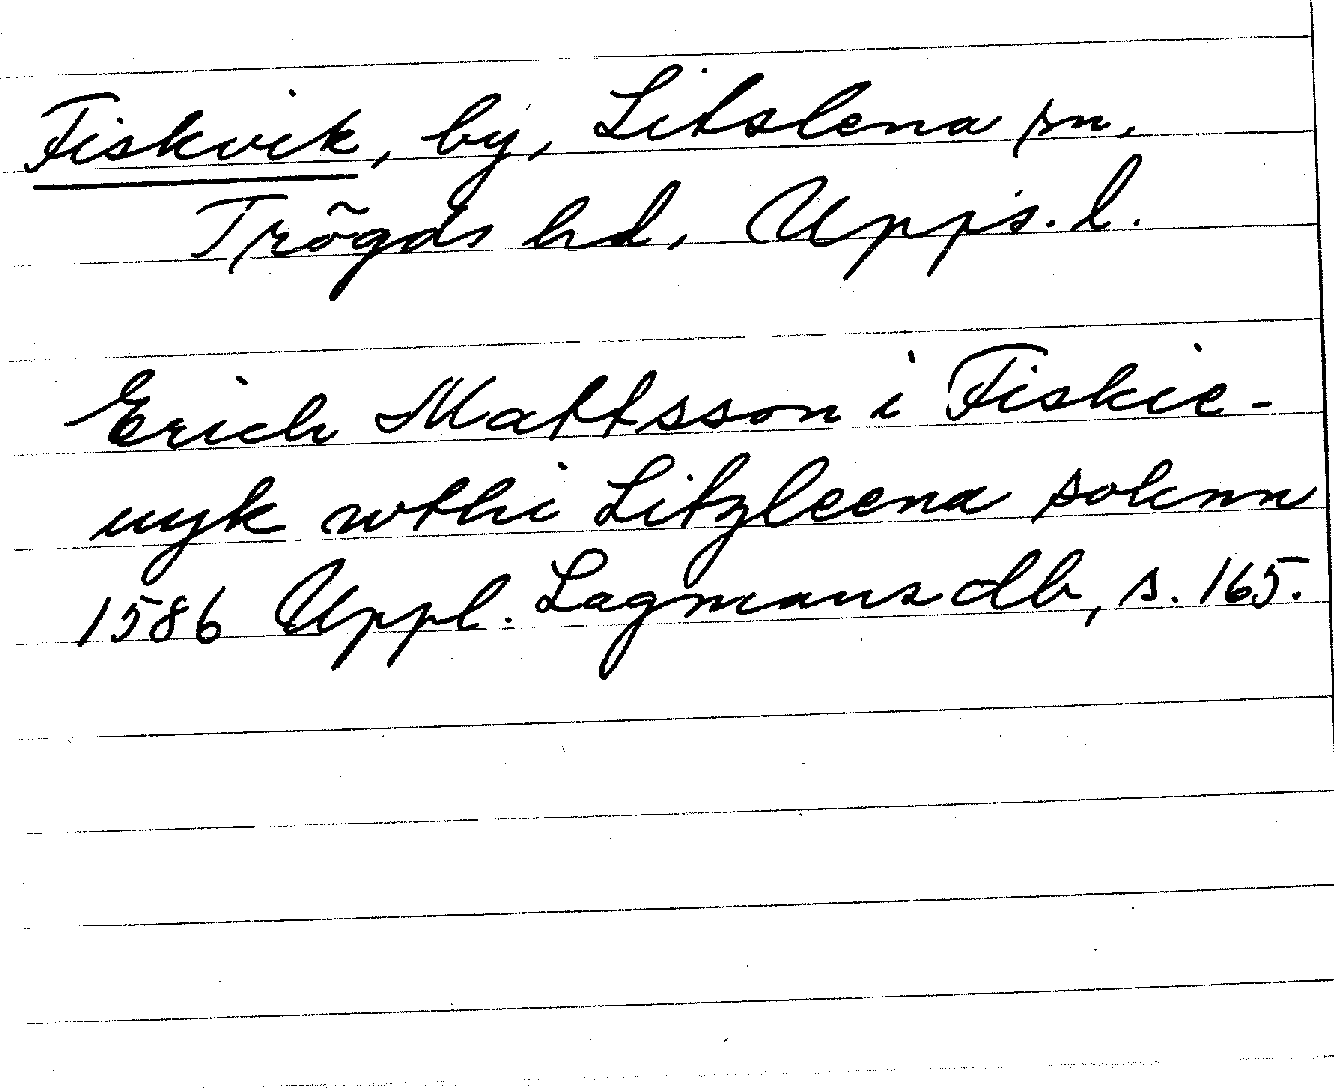 Fiskvik, by, Litslena sn,
Trögds hd, Upps. l.
Erich Mattsson i Fiskie-
uyk wthi Litzleena soknn
1586 Uppl. Lagmansdb, s. 165.